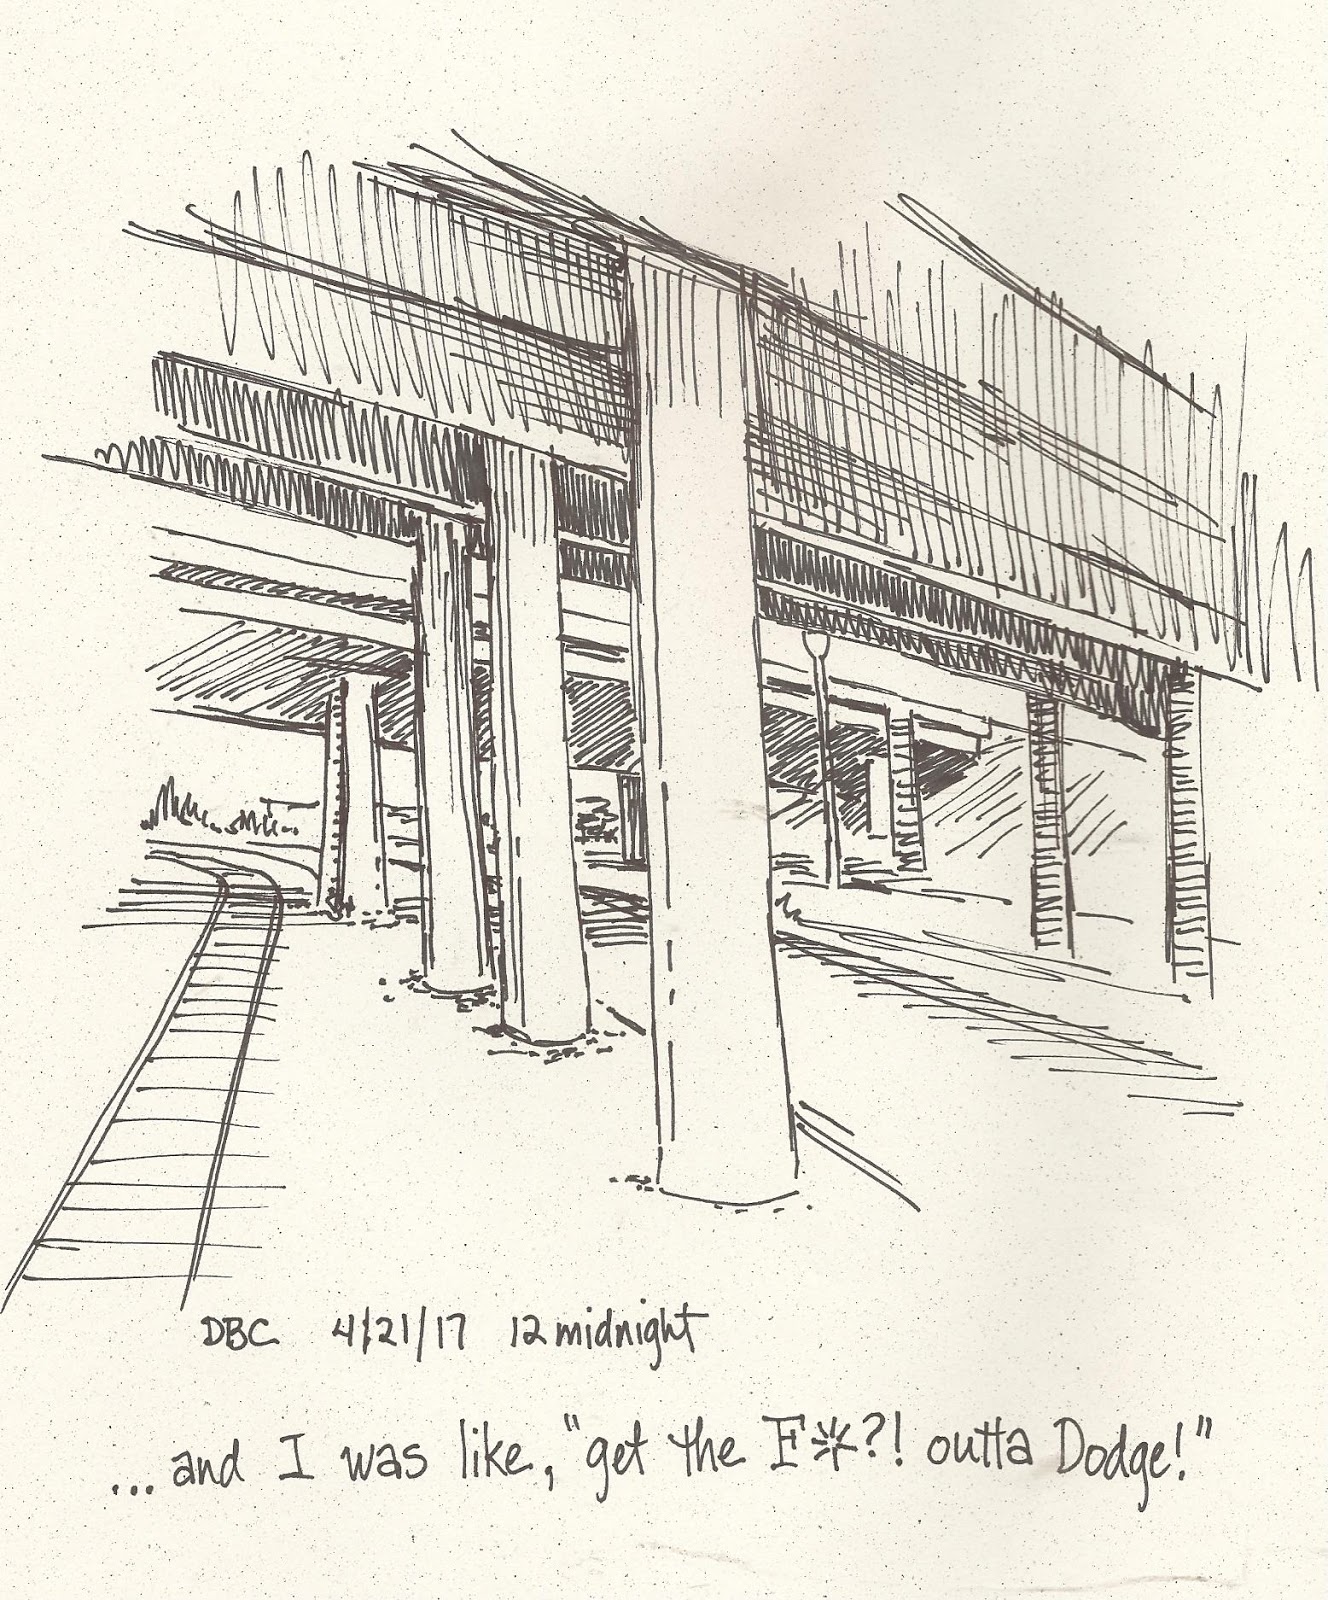 DBC 4/21/17 12 midnight
...and I was like, "get the F*?! outta Dodge!"